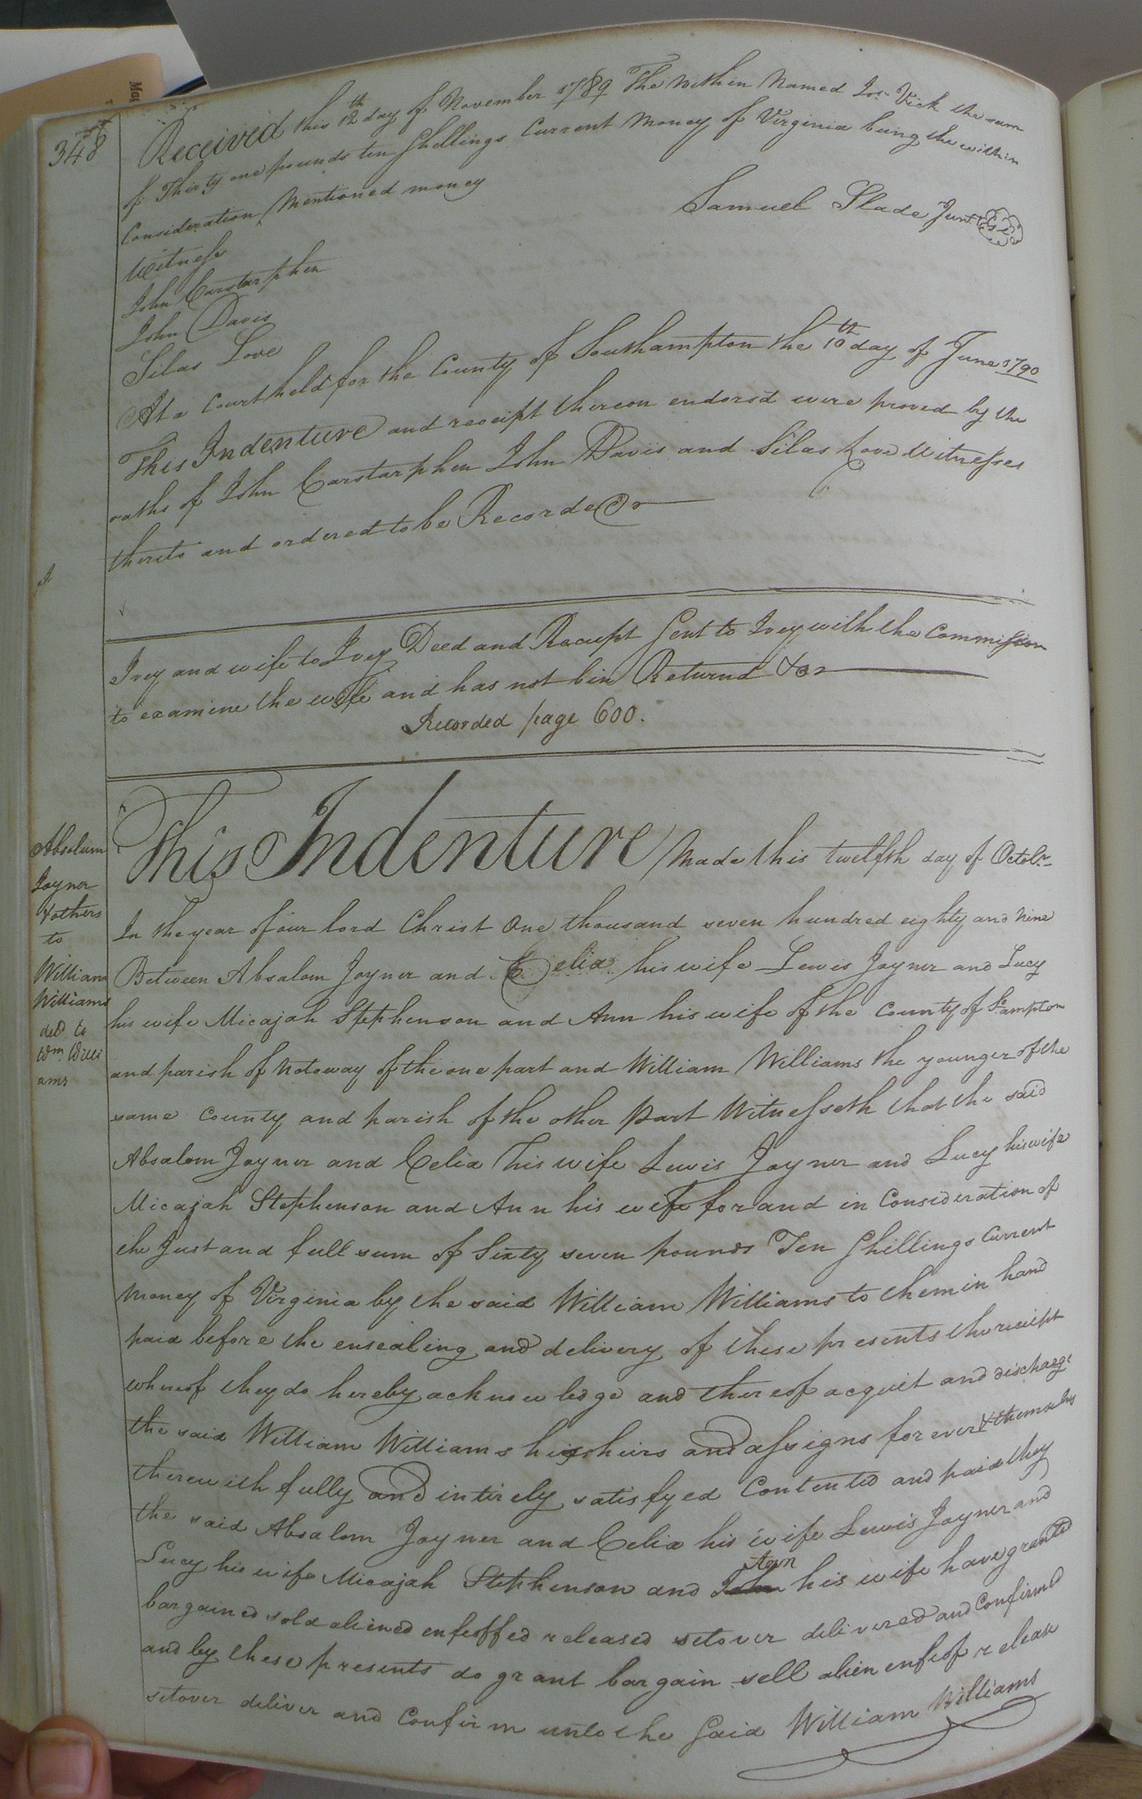 348
Received this 12th day of November 1789 The within Named Jos. Vick the sum
of Thirty one pounds ten Shillings Current Money of Virginia being the within
Consideration Mentioned money
Samuel Slade Junr
Witness
John Carstarphen
John Davis
Silas Love
At a Court held for the County of Southampton the 10th day of June 1790
This Indenture and receipt thereon endorsd were proved by the
oaths of John Carstarphen John Davis and Silas Love Witnesses
thereto and ordered to be Recorded
Ivey and wife to Ivey Deed and Receipt Sent to Ivey with the Commission
to examine the wife and has not bin Returnd
Recorded page 600.
Absolum
Joyner
& others
to
William
Williams
ded to
Wm Willi
ams
This Indenture Made this twelfth day of Octobr
In the year of our lord Christ One thousand seven hundred eighty and Nine
Between Absalom Joyner and Celia his wife Lewis Joyner and Lucy
his wife Micajah Stephenson and Ann his wife of the County of S.ampton
and parish of Notoway of the one part and William Williams the younger of the
same County and parish of the other part Witnesseth that the said
Absalom Joyner and Celia his wife Lewis Joyner and Lucy his wife
Micajah Stephenson and Ann his wife for and in Consideration of
the Just and full sum of Sixty seven pounds Ten Shillings Current
Money of Virginia by the said William Williams to them in hand
paid before the ensealing and delivery of these presents the reciept
whereof they do hereby acknowledge and thereof acquit and discharge
the said William Williams his heirs and assigns for ever & themselves
therewith fully and intirely satisfyed Contented and paid they
the said Absalom Joyner and Celia his wife Lewis Joyner and
Lucy his wife Micajah Stephenson and Ann his wife have granted
bargained sold aliened enfeoffed released setover delivered and Confirmed
and by these presents do grant bargain sell alien enfeof release
setover deliver and Confirm unto the Said William Williams